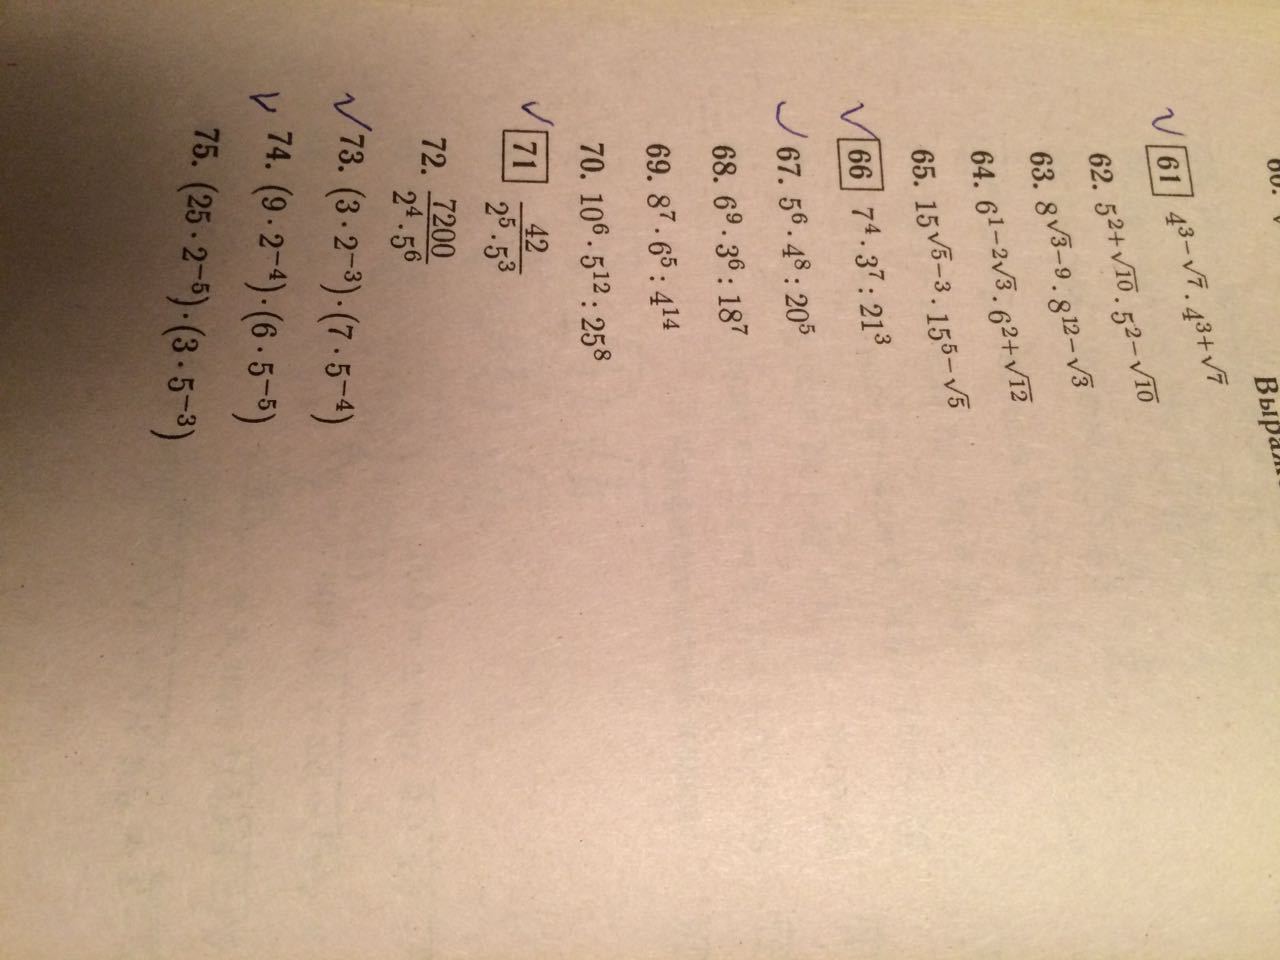 60. √
Выраж
61 4^{3−√7} · 4^{3+√7}
62. 5^{2+√10} · 5^{2−√10}
63. 8^{√3−9} · 8^{12−√3}
64. 6^{1−2√3} · 6^{2+√12}
65. 15^{√5−3} · 15^{5−√5}
66 7⁴ · 3⁷ : 21³
67. 5⁶ · 4⁸ : 20⁵
68. 6⁹ · 3⁶ : 18⁷
69. 8⁷ · 6⁵ : 4¹⁴
70. 10⁶ · 5¹² : 25⁸
71 42 / (2⁵ · 5³)
72. 7200 / (2⁴ · 5⁶)
73. (3 · 2⁻³) · (7 · 5⁻⁴)
74. (9 · 2⁻⁴) · (6 · 5⁻⁵)
75. (25 · 2⁻⁵) · (3 · 5⁻³)